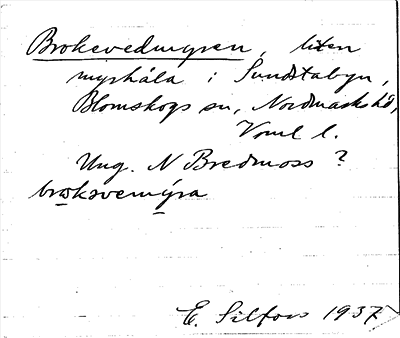 Brokevedmyren, liten
myrhåla i Sundstabyn,
Blomskogs sn, Nordmarks hd,
Vrml l.
Ung. N Bredmoss ?
broksvemýra
E. Silfors 1937